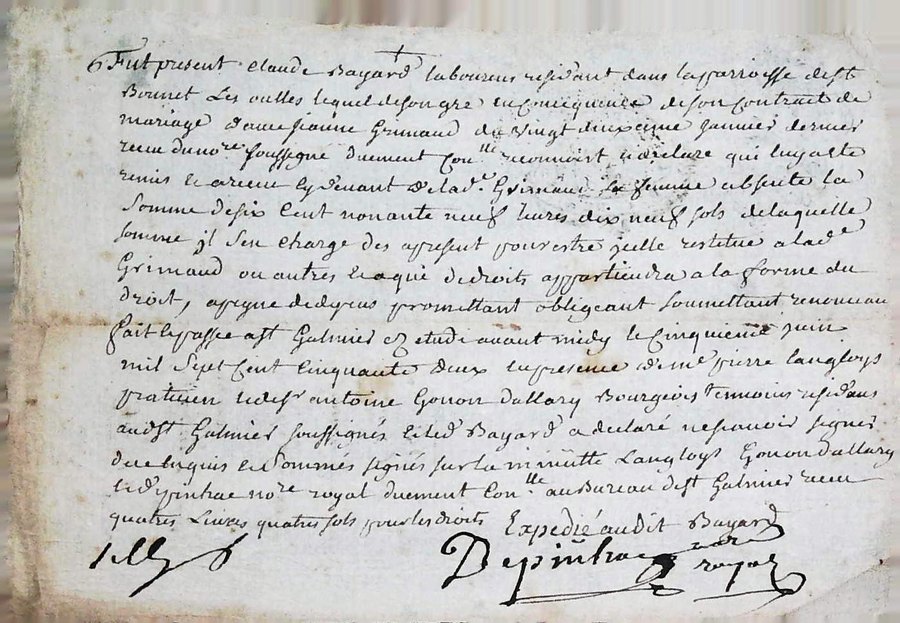 6 Fut present Claude Bayard laboureur residant dans la parroisse de st
Bonnet Les oulles lequel de son gre en consequence de son contract de
mariage d'avec Jeanne Grimaud du vingt deuxieme Janvier dernier
recu du nore. soussigné duement Con.lle reconnoist declare qui luy a esté
remis cy devant de lad.e Grimaud sa femme absente la
Somme de six Cent nonante neuf livres dix neuf sols de laquelle
somme jl s'en charge des apresent pour estre jcelle restitué a lad.e
Grimaud ou autres a qui de droits appartiendra a la forme du
droit, a peyne de depens promettant obligeant soumettant renonceau
fait et passé a st Galmier ez etude avant midy le Cinquieme juin
mil Sept Cent Cinquante deux en presence de me. pierre Langloys
praticien et de sr antoine Gonon Dallary Bourgeois temoins residans
aud. st Galmier soussignés et led. Bayard a declaré ne scavoir signer
de ce enquis et sommés signés sur la minutte Langloys Gonon Dallary
et depinhac nore. royal duement Con.lle au Bureau de st Galmier recu
quatres Livres quatres sols pour les droits Expedié audit Bayard
Depinhac nore
royal